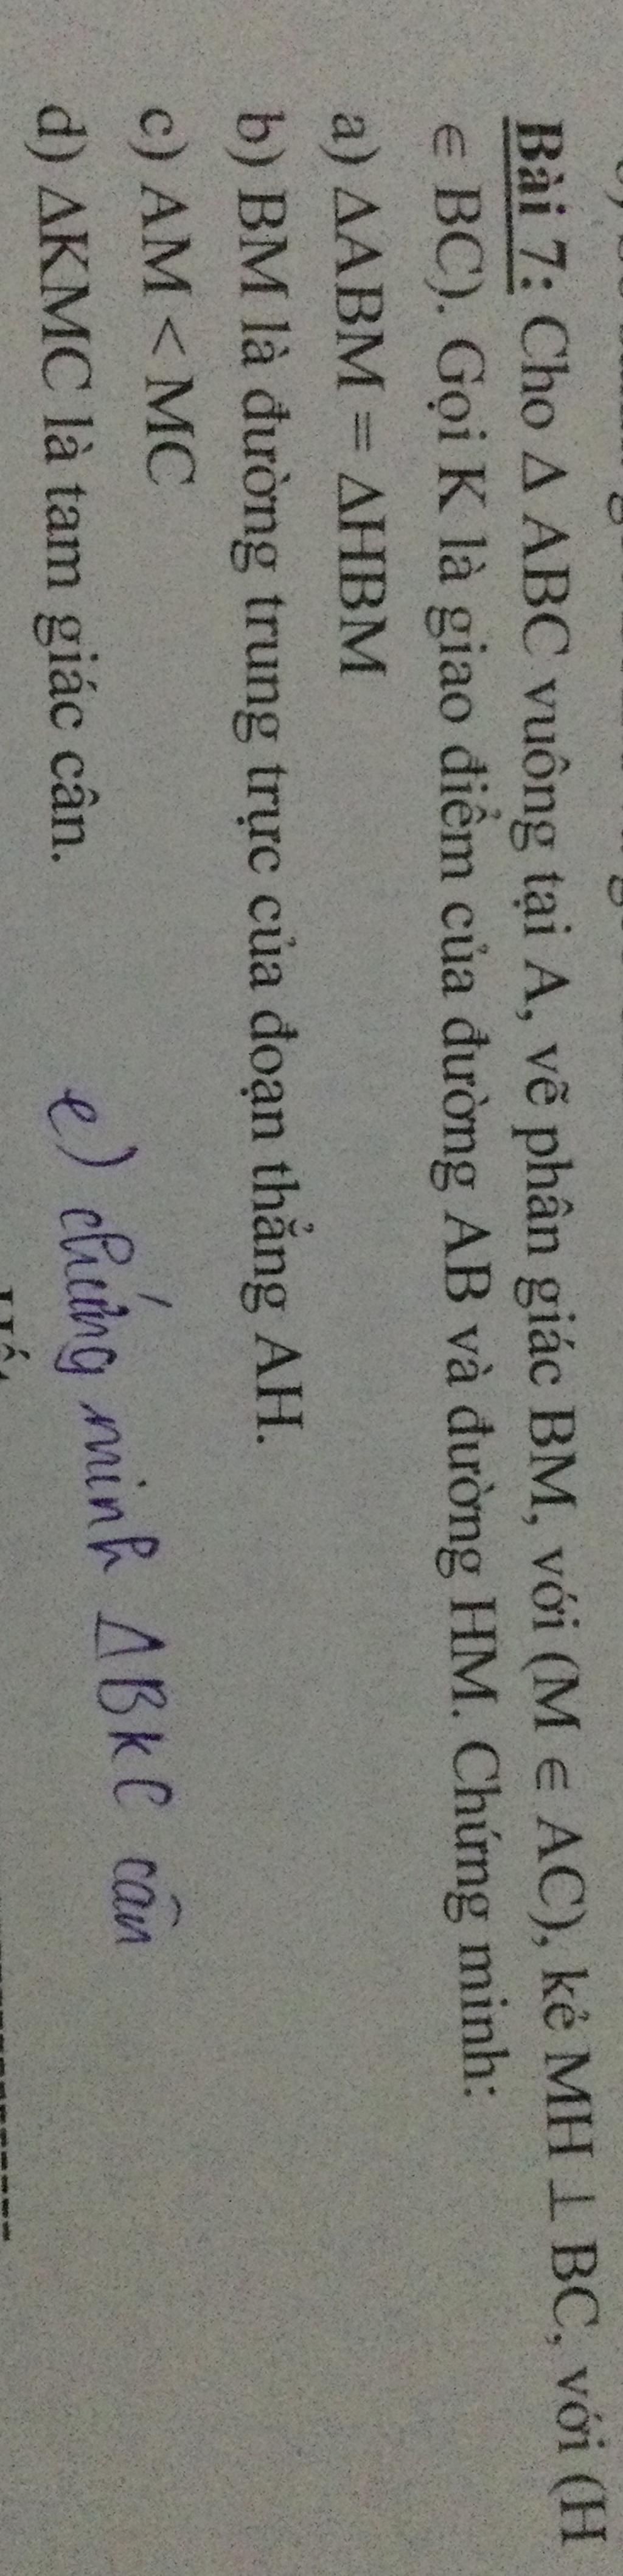 Bài 7: Cho Δ ABC vuông tại A, vẽ phân giác BM, với (M ∈ AC), kẻ MH ⊥ BC, với (H
∈ BC). Gọi K là giao điểm của đường AB và đường HM. Chứng minh:
a) ΔABM = ΔHBM
b) BM là đường trung trực của đoạn thẳng AH.
c) AM < MC
d) ΔKMC là tam giác cân.
e) chứng minh ΔBKC cân